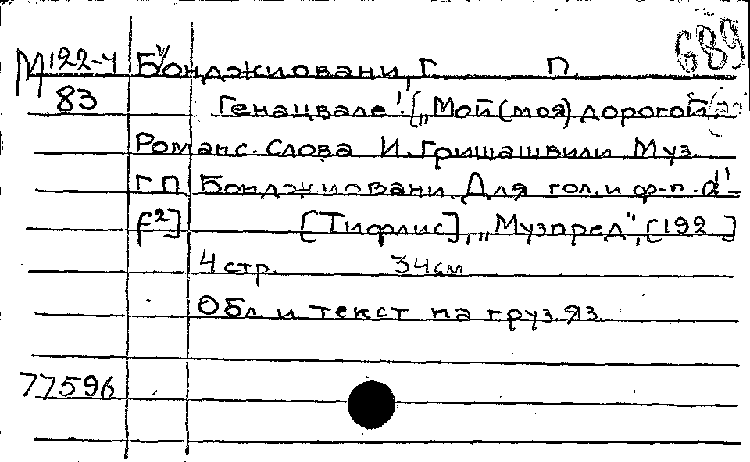 689
М 122-4 Бонджиовани, Г. П.
83 Генацвале! [„Мой (моя) дорогой
Романс. Слова И. Гришашвили Муз.
Г. П. Бонджиовани. Для гол. и ф-п. d'-
f²] [Тифлис], „Музпред", [192 ]
4 стр. 34 см
Обл и текст на груз. яз.
77596